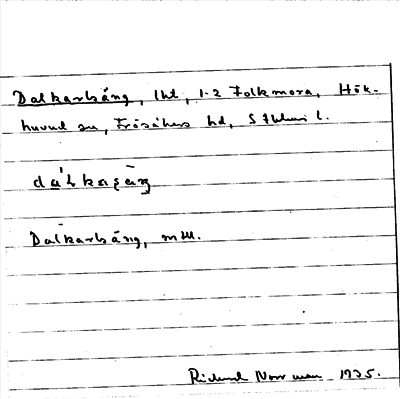 Dalkarbäng, lht, 1-2 Folkmora, Hök-
huvud sn, Frösåkers hd, Sthlms l.
Dalkarbäng, mtll.
Rickard Norrman 1935.